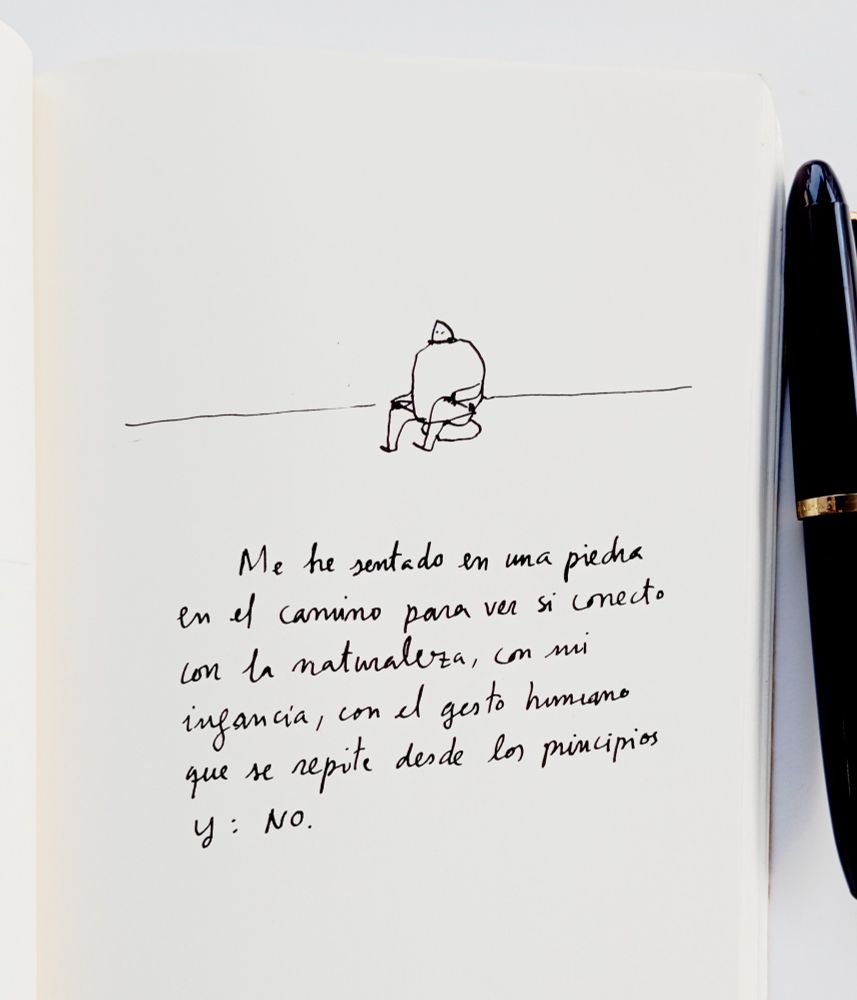 Me he sentado en una piedra
en el camino para ver si conecto
con la naturaleza, con mi
infancia, con el gesto humano
que se repite desde los principios
y: NO.